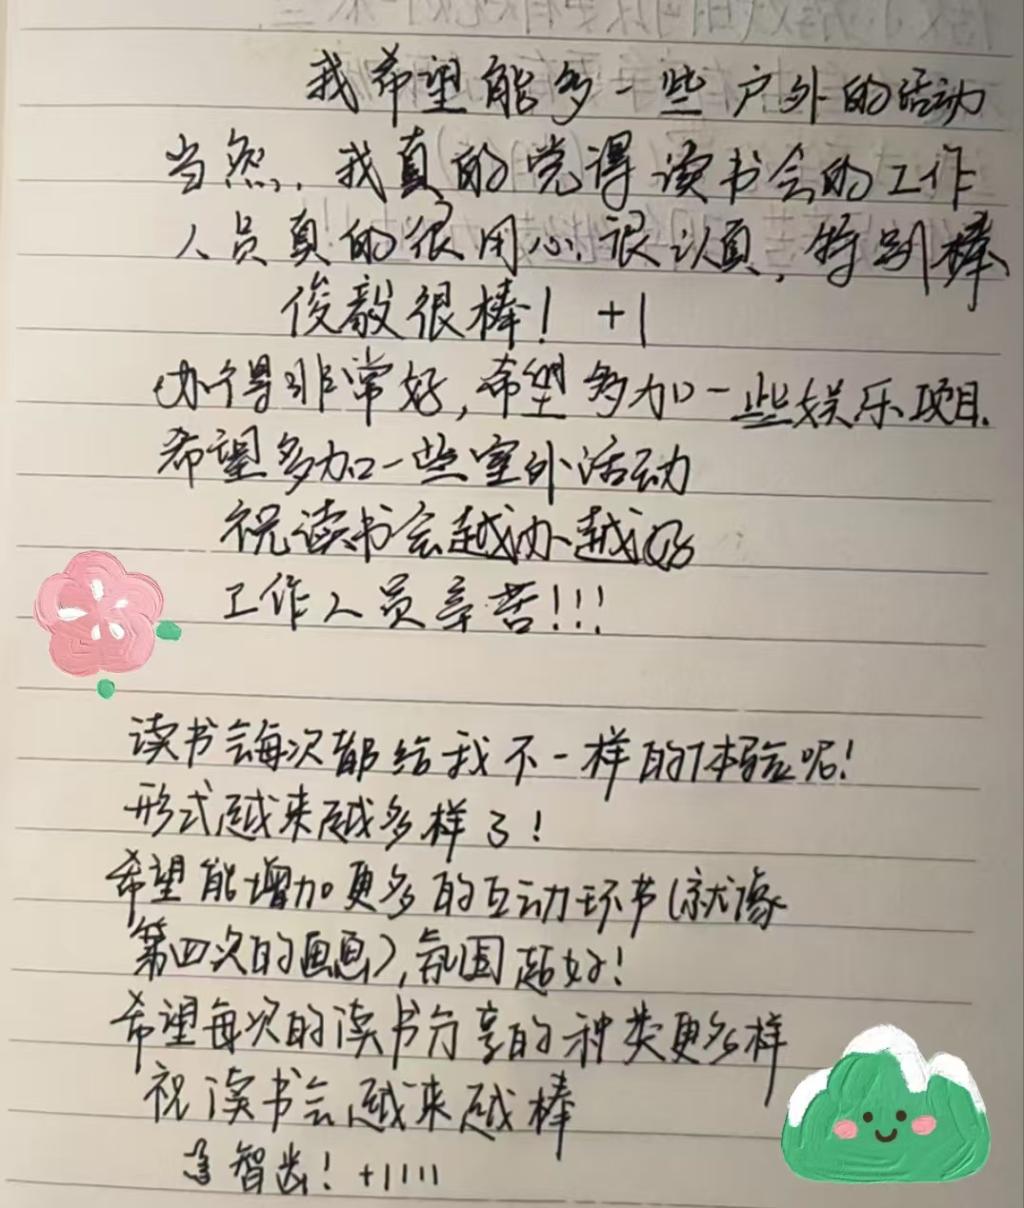 我希望能多一些户外的活动
当然，我真的觉得读书会的工作
人员真的很用心，很认真，特别棒
俊毅很棒！+1
办得非常好，希望多加一些娱乐项目.
希望多加一些室外活动
祝读书会越办越好
工作人员辛苦!!!
读书会每次都给我不一样的体验呢！
形式越来越多样了！
希望能增加更多的互动环节（就像
第四次的画画），氛围超好！
希望每次的读书分享的种类更多样
祝读书会越来越棒
智齿！+1111